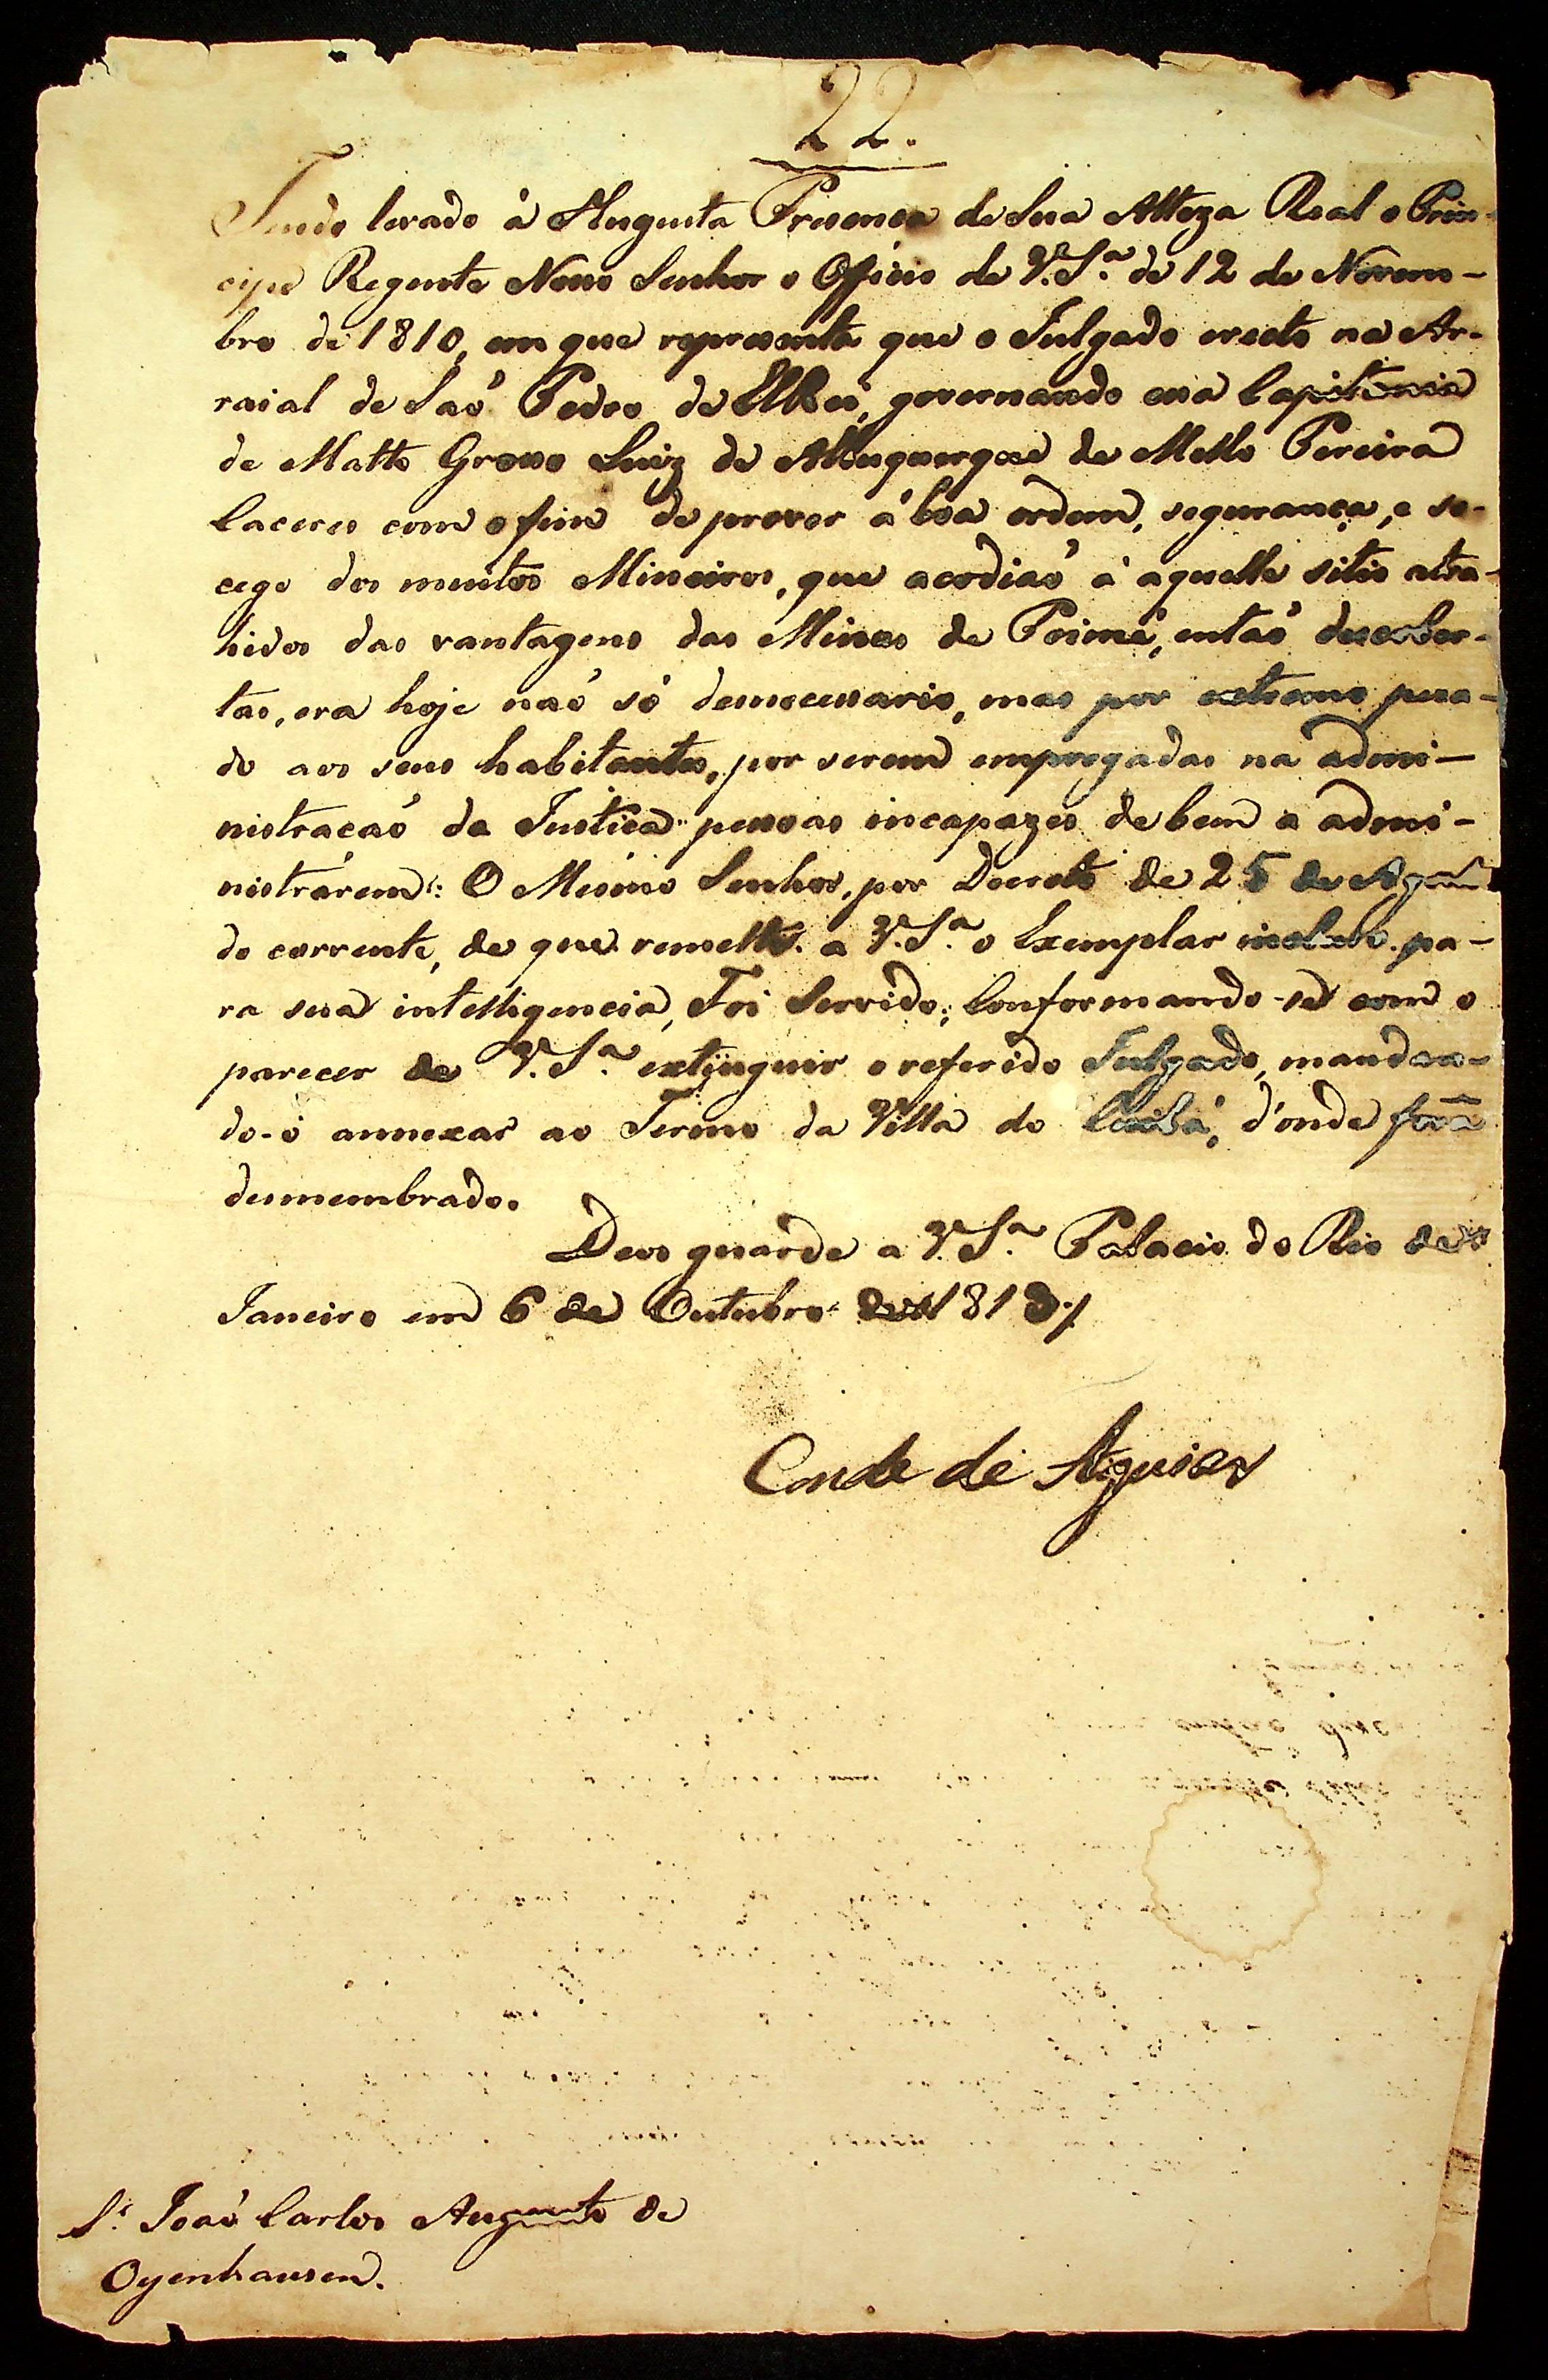 22.
Tendo levado à Augusta Presença de Sua Alteza Real o Prin-
cipe Regente Nosso Senhor o Officio de V. S.ª de 12 de Novem-
bro de 1810, em que representa que o Julgado erecto no Ar-
raial de Saõ Pedro de ElRei, governando essa Capitania
de Matto Grosso Luiz de Albuquerque de Mello Pereira
Caceres com o fim de prover á boa ordem, segurança, e so-
cego dos muitos Mineiros, que acodiaõ à aquelle sitio attra-
hidos das vantagens das Minas de Poiné, entaõ descober-
tas, era hoje naõ só desnecessario, mas por extremo pesa-
do aos seus habitantes, por serem empregadas na admi-
nistraçaõ da Justiça pessoas incapazes de bem a admi-
nistrárem: O Mesmo Senhor, por Decreto de 25 de
do corrente, de que remetto a V. S.ª o Exemplar incluso pa-
ra sua intelligencia, Foi Servido, Conformando-se com o
parecer de V. S.ª extinguir o referido Julgado, mandan-
do-o annexar ao Termo da Villa do Cuiabá, d'onde fora
desmembrado.
Deos guarde a V. S.ª Palacio do Rio de
Janeiro em 6 de Outubro de 181
Conde de Aguiar
S.r Joaõ Carlos Augusto de
Oyenhausen.